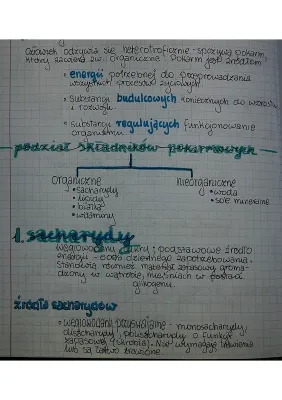 Człowiek odżywia się heterotroficznie - spożywa pokarm,
który zawiera zw. organiczne. Pokarm jest źródłem:
• energii potrzebnej do przeprowadzania
wszystkich procesów życiowych
• substancji budulcowych koniecznych do wzrostu
i rozwoju
• substancji regulujących funkcjonowanie
organizmu
podział składników pokarmowych
organiczne
• sacharydy
• lipidy
• białka
• witaminy
nieorganiczne
• woda
• sole mineralne
1. sacharydy
węglowodany, cukry; podstawowe źródło
energii - 60% dziennego zapotrzebowania.
Stanowią również materiał zapasowy groma-
dzony w wątrobie, mięśniach w postaci
glikogenu.
źródła sacharydów
• węglowodany przyswajalne - monosacharydy,
disacharydy, polisacharydy o funkcji
zapasowej (skrobia). Nie wymagają trawienia
lub są łatwo trawione.